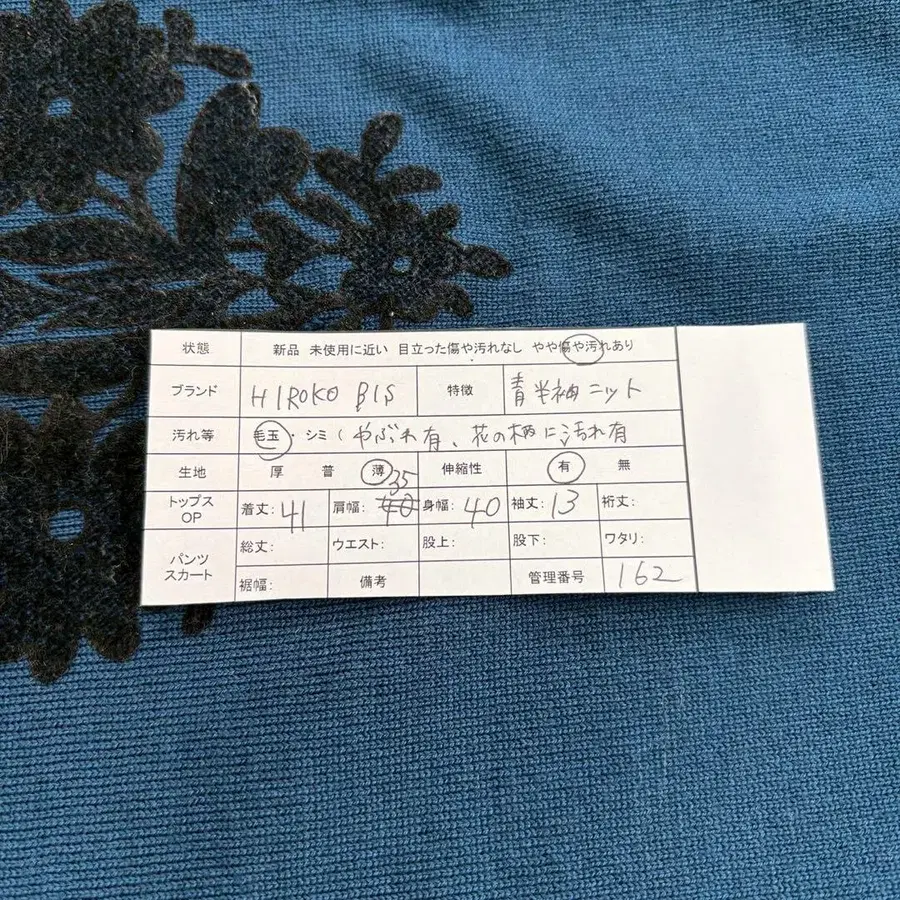 状態 新品 未使用に近い 目立った傷や汚れなし やや傷や汚れあり
ブランド HIROKO BIS 特徴 青半袖ニット
汚れ等 毛玉・シミ( やぶれ有、花の柄に汚れ有
生地 厚 普 薄 伸縮性 有 無
トップス OP 着丈: 41 肩幅: 40 35 身幅: 40 袖丈: 13 裄丈:
パンツ スカート 総丈: ウエスト: 股上: 股下: ワタリ:
裾幅: 備考 管理番号 162